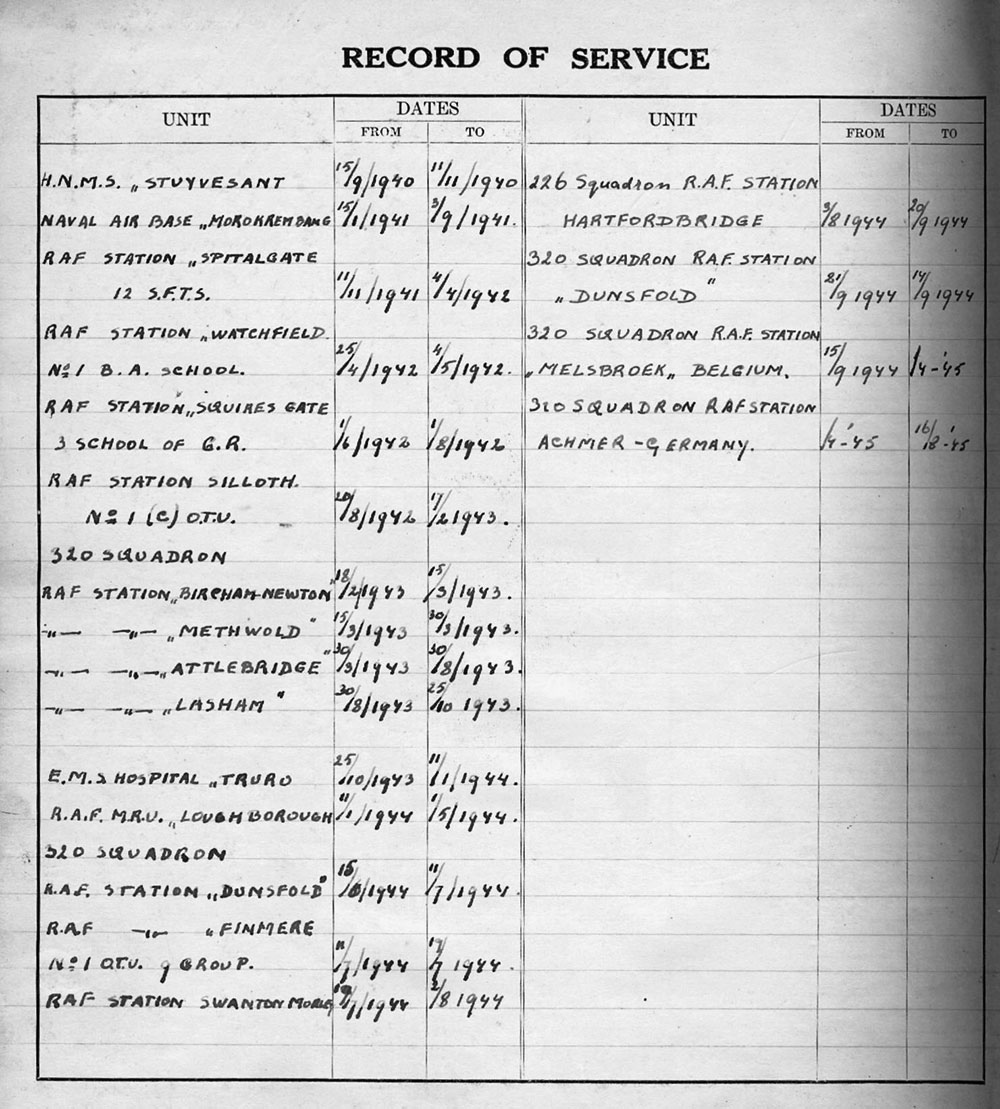 RECORD OF SERVICE
UNIT DATES UNIT DATES
FROM TO FROM TO
H.N.M.S. „STUYVESANT 15/9/1940 11/11/1940
NAVAL AIR BASE „MOROKREMBANG 15/1/1941 3/9/1941.
RAF STATION „SPITALGATE
12 S.F.T.S. 11/11/1941 4/4/1942
RAF STATION „WATCHFIELD.
No 1 B.A. SCHOOL. 25/4/1942 4/5/1942.
RAF STATION „SQUIRES GATE
3 SCHOOL OF G.R. 1/6/1942 1/8/1942.
RAF STATION SILLOTH.
No 1 (C) O.T.U. 20/8/1942 17/2 1943.
320 SQUADRON
RAF STATION „BIRCHAM-NEWTON" 18/2/1943 15/3/1943.
-„- -„- „METHWOLD" 15/3/1943 30/3/1943.
-„- -„- „ATTLEBRIDGE" 30/3/1943 30/8/1943.
-„- -„- „LASHAM" 30/8/1943 25/10 1943.
E.M.S HOSPITAL „TRURO 25/10/1943 11/1/1944.
R.A.F. M.R.U. „LOUGHBOROUGH 11/1/1944 1/5/1944.
320 SQUADRON
R.A.F. STATION „DUNSFOLD" /1944 11/7/1944.
R.A.F -„- „FINMERE
No 1 O.T.U. 9 GROUP. 11/7/1944 /7 1944.
RAF STATION SWANTON MORLEY /7/1944 2/8 1944
226 Squadron R.A.F. STATION
HARTFORDBRIDGE 3/8 1944 20/9 1944
320 SQUADRON R.A.F. STATION
„DUNSFOLD" 21/9 1944 14/9 1944
320 SQUADRON R.A.F. STATION
„MELSBROEK„ BELGIUM. 15/9 1944 /4-'45
320 SQUADRON RAF STATION
ACHMER-GERMANY. /4-'45 16/8-'45